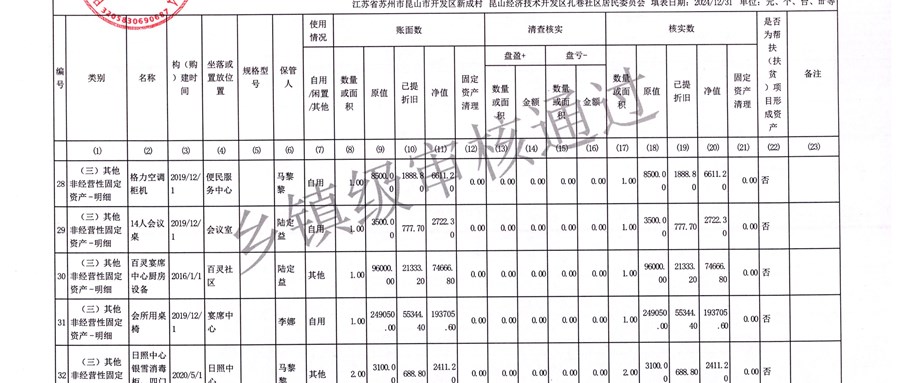 江苏省苏州市昆山市开发区新成村 昆山经济技术开发区孔巷社区居民委员会 填表日期：2024/12/31 单位：元、个、台、亩等
3205830690687
编号 类别 名称 构（购）建时间 坐落或置放位置 规格型号 保管人 使用情况 账面数 清查核实 核实数 是否为帮扶（扶贫）项目形成资产 备注
盘盈+ 盘亏-
自用/闲置/其他 数量或面积 原值 已提折旧 净值 固定资产清理 数量或面积 金额 数量或面积 金额 数量或面积 原值 已提折旧 净值 固定资产清理
(1) (2) (3) (4) (5) (6) (7) (8) (9) (10) (11) (12) (13) (14) (15) (16) (17) (18) (19) (20) (21) (22) (23)
28 （三）其他非经营性固定资产-明细 格力空调柜机 2019/12/1 便民服务中心 马黎黎 自用 1.00 8500.00 1888.80 6611.20 0.00 0.00 0.00 0.00 0.00 1.00 8500.00 1888.80 6611.20 0.00 否
29 （三）其他非经营性固定资产-明细 14人会议桌 2019/12/1 会议室 陆定益 自用 1.00 3500.00 777.70 2722.30 0.00 0.00 0.00 0.00 0.00 1.00 3500.00 777.70 2722.30 0.00 否
30 （三）其他非经营性固定资产-明细 百灵宴席中心厨房设备 2016/1/1 百灵社区 陆定益 其他 1.00 96000.00 21333.20 74666.80 0.00 0.00 0.00 0.00 0.00 1.00 96000.00 21333.20 74666.80 0.00 否
31 （三）其他非经营性固定资产-明细 会所用桌椅 2019/12/1 宴席中心 李娜 自用 1.00 249050.00 55344.40 193705.60 0.00 0.00 0.00 0.00 0.00 1.00 249050.00 55344.40 193705.60 0.00 否
32 （三）其他非经营性固定 日照中心银雪消毒柜，四门 2020/5/1 日照中 马黎黎 其他 2.00 3100.00 688.80 2411.20 0.00 0.00 0.00 0.00 0.00 2.00 3100.00 688.80 2411.20 0.00 否
乡镇级审核通过